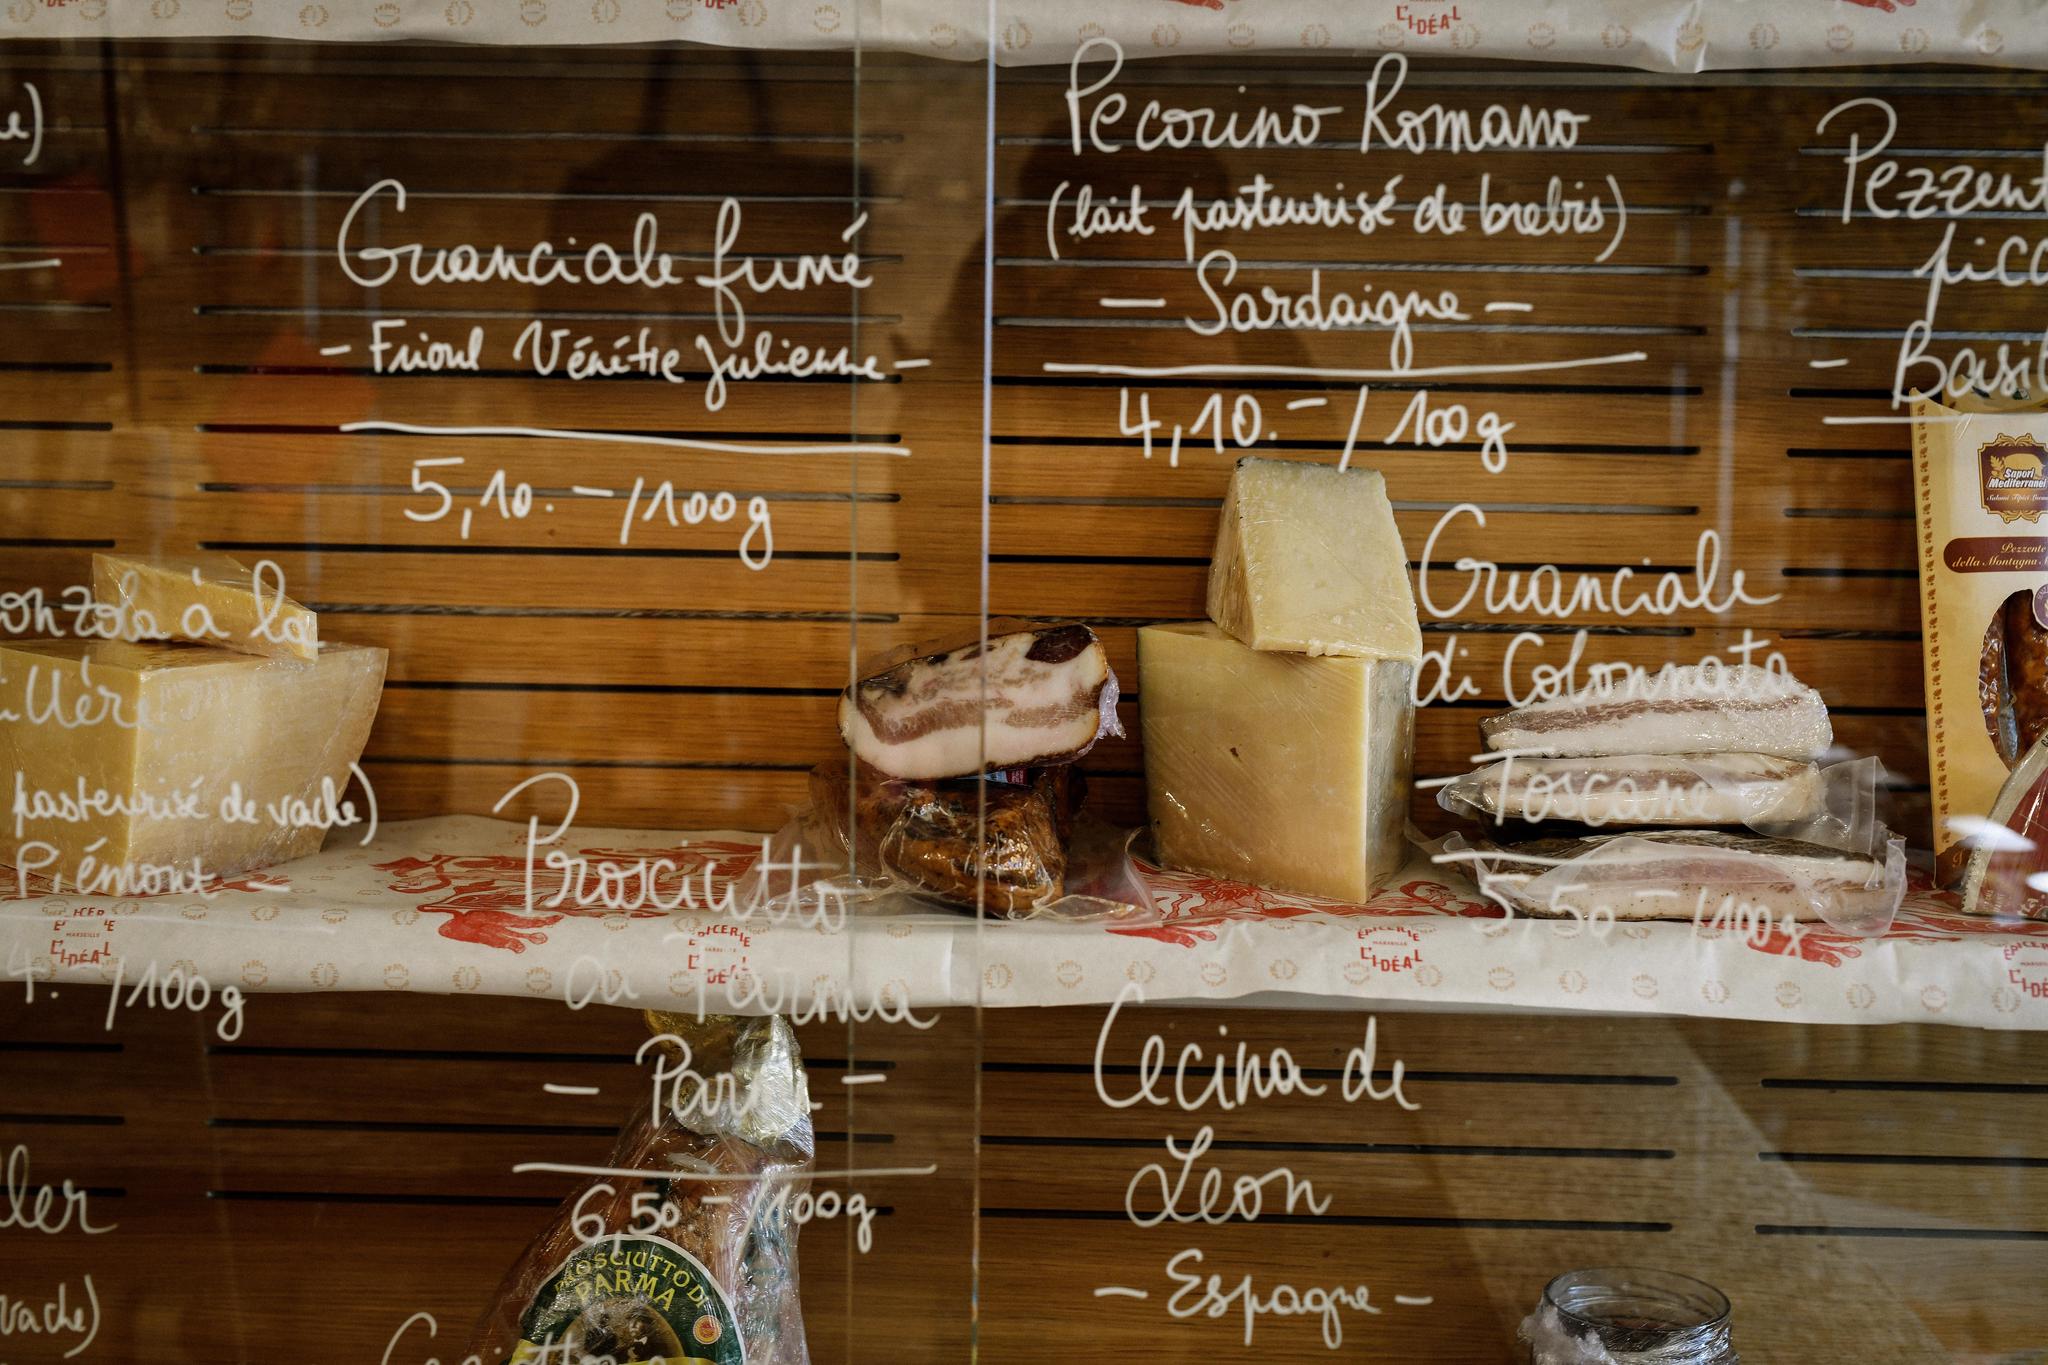 L'IDÉAL
Guanciale fumé
- Frioul Vénétie Julienne -
5,10.-/100g
Pecorino Romano
(lait pasteurisé de brebis)
- Sardaigne -
4,10.-/100g
Pezzent
picc
- Basil
Sapori
Mediterranei
Pezzente
della Montagna
Guanciale
di Colonnata
- Toscane
5,50-/100g
onzola à la
illère
pasteurisé de vache)
Piémont -
4. /100g
Prosciutto
di Parma
- Par -
6,50-/100g
PROSCIUTTO DI
PARMA
Cecina de
Leon
- Espagne -
ÉPICERIE
MARSEILLE
L'IDÉAL
ÉPICERIE
MARSEILLE
L'IDÉAL
ÉPICERIE
MARSEILLE
L'IDÉAL
ller
vache)